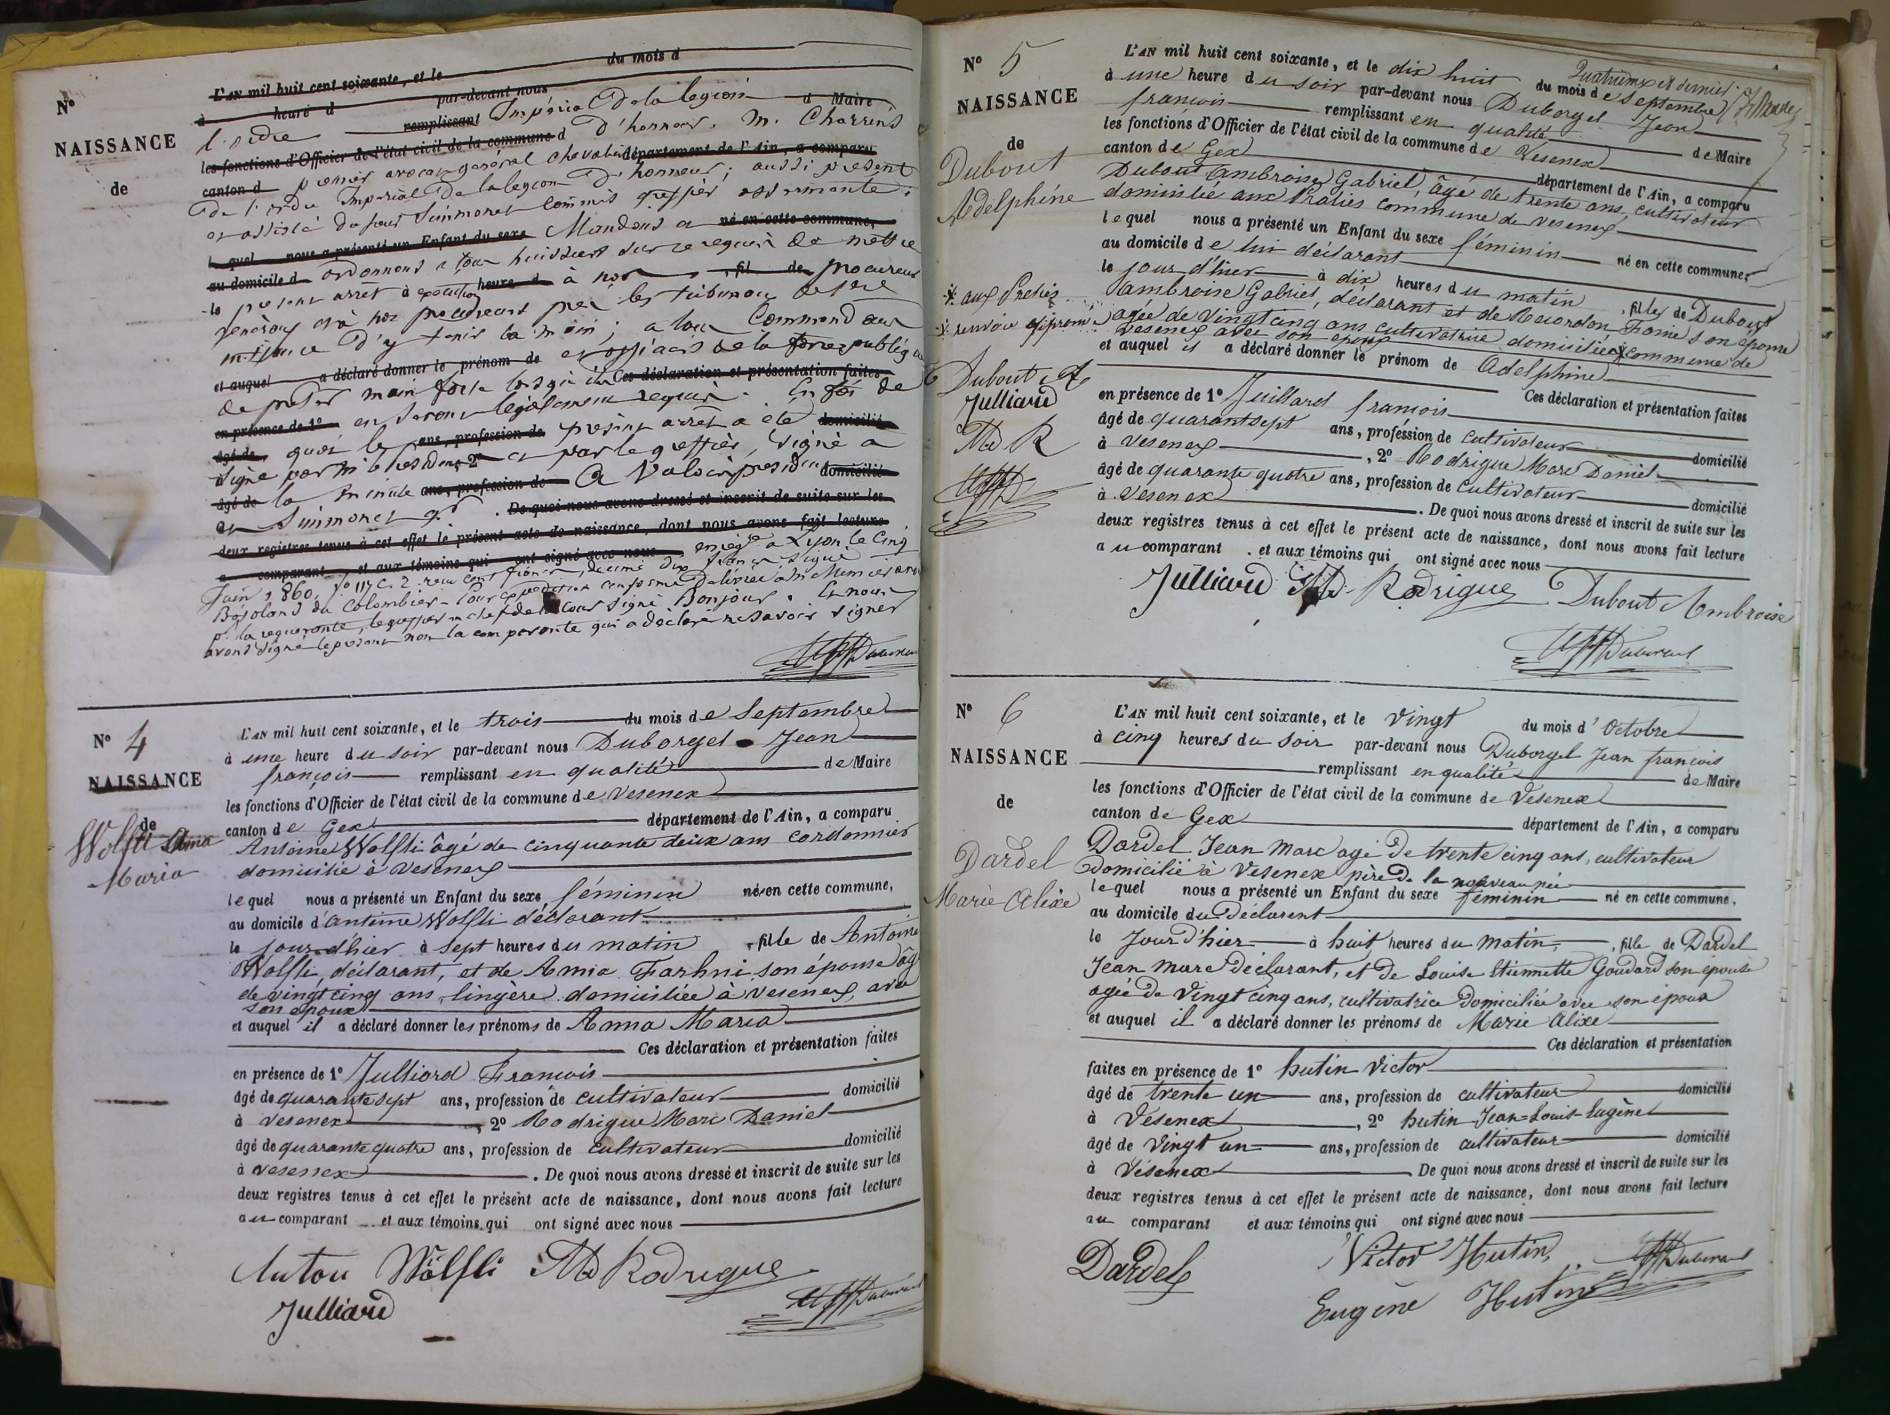 L'AN mil huit cent soixante, et le du mois d
N° heure d par-devant nous Impérial de la legion d Maire
NAISSANCE l'ordre remplissant d'honneur. M. Charrins
les fonctions d'Officier de l'état civil de la commune d
de canton d premier avocat général chevalier département de l'Ain, a comparu
de l'ordre Impérial de la legion d'honneur; aussi présent
et assisté de Simmonet commis greffier
quel nous a présenté un Enfant du sexe Mandons né en cette commune,
au domicile d ordonnons à tous huissiers sur ce requis de mettre
le présent arrêt à exécution heure d à nos fil de procureurs
généraux et à nos procureurs près les tribunaux de 1ère
instance d'y tenir la main; à tous Commandants
et officiers de la force publique
et auquel a déclaré donner le prénom de
de prêter main forte lorsqu'ils Ces déclaration et présentation faites
en présence de 1° en seront légalement requis. En foi de
âgé de quoi le ans, profession de présent arrêt a été domicilié
signé par M. le Président 2° et par le greffier, Signé a
âgé de la minute ans, profession de Valois président domicilié
et Simmonet De quoi nous avons dressé et inscrit de suite sur les
deux registres tenus à cet effet le présent acte de naissance, dont nous avons fait lecture
a comparant et aux témoins qui ont signé avec nous enreg à Lyon le Cinq
Juin 1860, signé
pr la requerante, le greffier en chef de la Cour signé Bonjour. Et nous
avons signé le présent non la comparante qui a déclaré ne savoir signer
N° 4
NAISSANCE
de
Wolfli Anna
Maria
L'AN mil huit cent soixante, et le trois du mois de Septembre
à une heure du soir par-devant nous Duborgel Jean
françois remplissant en qualité de Maire
les fonctions d'Officier de l'état civil de la commune de Vesenex
canton de Gex département de l'Ain, a comparu
Antoine Wolfli âgé de cinquante deux ans cordonnier
domicilié à Vesenex
lequel nous a présenté un Enfant du sexe féminin né en cette commune,
au domicile d'antoine Wolfli déclarant
le jour d'hier à sept heures du matin, fille de Antoine
Wolfli, déclarant, et de Amia Farhni son épouse âgée
de vingt cinq ans, lingère domiciliée à Vesenex, avec
son époux
et auquel il a déclaré donner les prénoms de Anna Maria
Ces déclaration et présentation faites
en présence de 1° Julliard François
âgé de quarante sept ans, profession de cultivateur domicilié
à Vesenex, 2° Rodrigue Marc Daniel
âgé de quarante quatre ans, profession de cultivateur domicilié
à Vesenex. De quoi nous avons dressé et inscrit de suite sur les
deux registres tenus à cet effet le présent acte de naissance, dont nous avons fait lecture
au comparant et aux témoins qui ont signé avec nous
Anton Wölfli MD Rodrigue
Julliard
Quatrième et dernier
N° 5
NAISSANCE
de
Dubout
Adelphine
L'AN mil huit cent soixante, et le dix huit du mois de Septembre
à une heure du soir par-devant nous Duborgel Jean
francois remplissant en qualité de Maire
les fonctions d'Officier de l'état civil de la commune de Vesenex
canton de Gex département de l'Ain, a comparu
Dubout Ambroise Gabriel, âgé de trente ans, cultivateur
domicilié aux Praliès commune de Vesenex
lequel nous a présenté un Enfant du sexe féminin né en cette commune,
au domicile de lui déclarant
le jour d'hier à dix heures du matin, fille de Dubout
ambroise Gabriel, déclarant et de Recordon Fanie son épouse
agée de vingt cinq ans cultivatrice domiciliée commune de
Vesenex avec son époux
et auquel il a déclaré donner le prénom de Adelphine
aux Pralies
renvoi approuvé
Dubout A
Julliard
MD R
Ces déclaration et présentation faites
en présence de 1° Juillard francois
âgé de quarante sept ans, profession de cultivateur domicilié
à Vesenex, 2° Rodrigue Marc Daniel
âgé de quarante quatre ans, profession de cultivateur domicilié
à Vesenex. De quoi nous avons dressé et inscrit de suite sur les
deux registres tenus à cet effet le présent acte de naissance, dont nous avons fait lecture
au comparant et aux témoins qui ont signé avec nous
Julliard MD Rodrigue Dubout Ambroise
N° 6
NAISSANCE
de
Dardel
Marie Alixe
L'AN mil huit cent soixante, et le vingt du mois d'Octobre
à cinq heures du soir par-devant nous Duborgel Jean françois
remplissant en qualité de Maire
les fonctions d'Officier de l'état civil de la commune de Vesenex
canton de Gex département de l'Ain, a comparu
Dardel Jean Marc agé de trente cinq ans, cultivateur
Domicilié à Vesenex père de la nouveau née
lequel nous a présenté un Enfant du sexe féminin né en cette commune,
au domicile du déclarent
le Jour d'hier à huit heures du matin, fille de Dardel
Jean Marc déclarant, et de Louise Etiennette Goudard son épouse
agée de vingt cinq ans, cultivatrice domiciliée avec son époux
et auquel il a déclaré donner les prénoms de Marie Alixe
Ces déclaration et présentation
faites en présence de 1° hutin Victor
âgé de trente un ans, profession de cultivateur domicilié
à Vésenex, 2° hutin Jean=Louis Eugène
âgé de vingt un ans, profession de cultivateur domicilié
à Vésenex De quoi nous avons dressé et inscrit de suite sur les
deux registres tenus à cet effet le présent acte de naissance, dont nous avons fait lecture
au comparant et aux témoins qui ont signé avec nous
Dardel Victor Hutin
Eugène Hutin